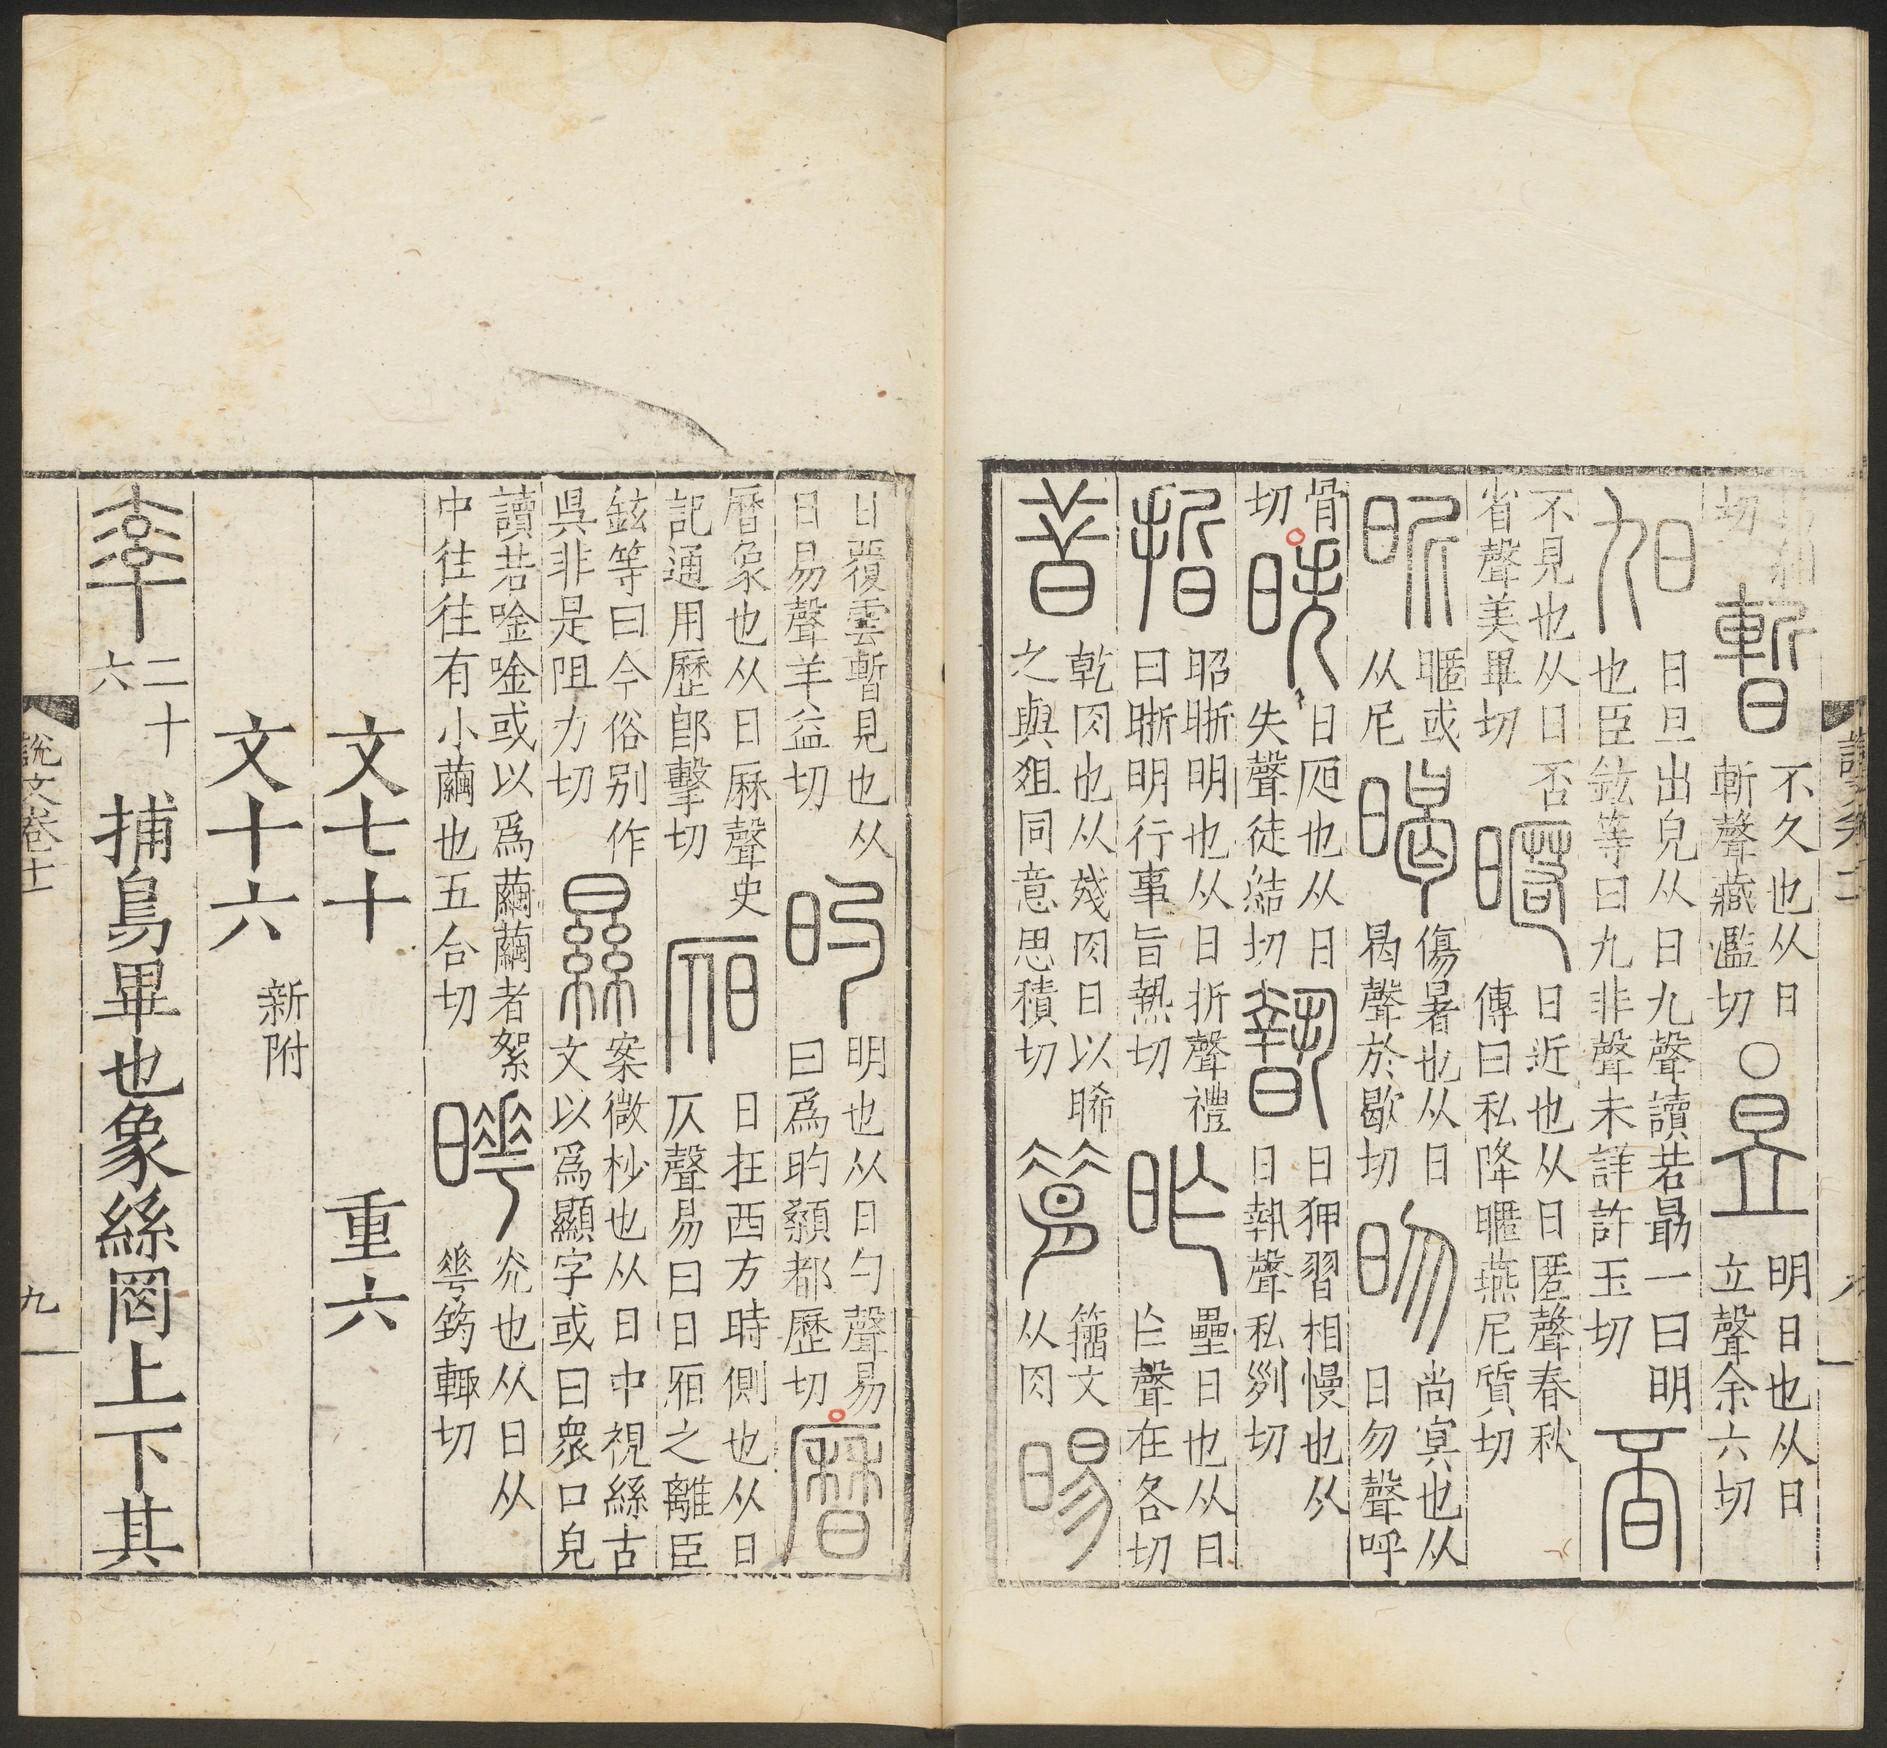 切 暫 不久也从日斬聲藏濫切 ○ 昱 明日也从日立聲余六切
旭 日旦出皃从日九聲讀若勗一曰明也臣鉉等曰九非聲未詳許玉切 㫘
不見也从日否省聲美畢切 暱 日近也从日匿聲春秋傳曰私降暱燕尼質切
昵 暱或从尼 暍 傷暑也从日曷聲於歇切 昒 尚冥也从日勿聲呼
骨切 昳 日𣅔也从日失聲徒結切 暬 日狎習相慢也从日執聲私列切
晢 昭晣明也从日折聲禮曰晣明行事旨熱切 昨 壘日也从日乍聲在各切
昔 乾肉也从殘肉日以晞之與俎同意思積切 𦠡 籒文从肉 晹
日覆雲暫見也从日易聲羊益切 旳 明也从日勺聲易曰爲旳顙都歷切 曆
曆象也从日厤聲史記通用歷郎擊切 𣅔 日在西方時側也从日仄聲易曰日𣅔之離臣
鉉等曰今俗别作吳非是阻力切 㬎 案微杪也从日中視絲古文以爲顯字或曰衆口皃
讀若唫唫或以爲繭繭者絮中往往有小繭也五合切 曄 㷠也从日从𠌶筠輒切
文七十 重六
文十六 新附
𠦒 二十六 捕鳥畢也象絲罔上下其
說文卷十一 九